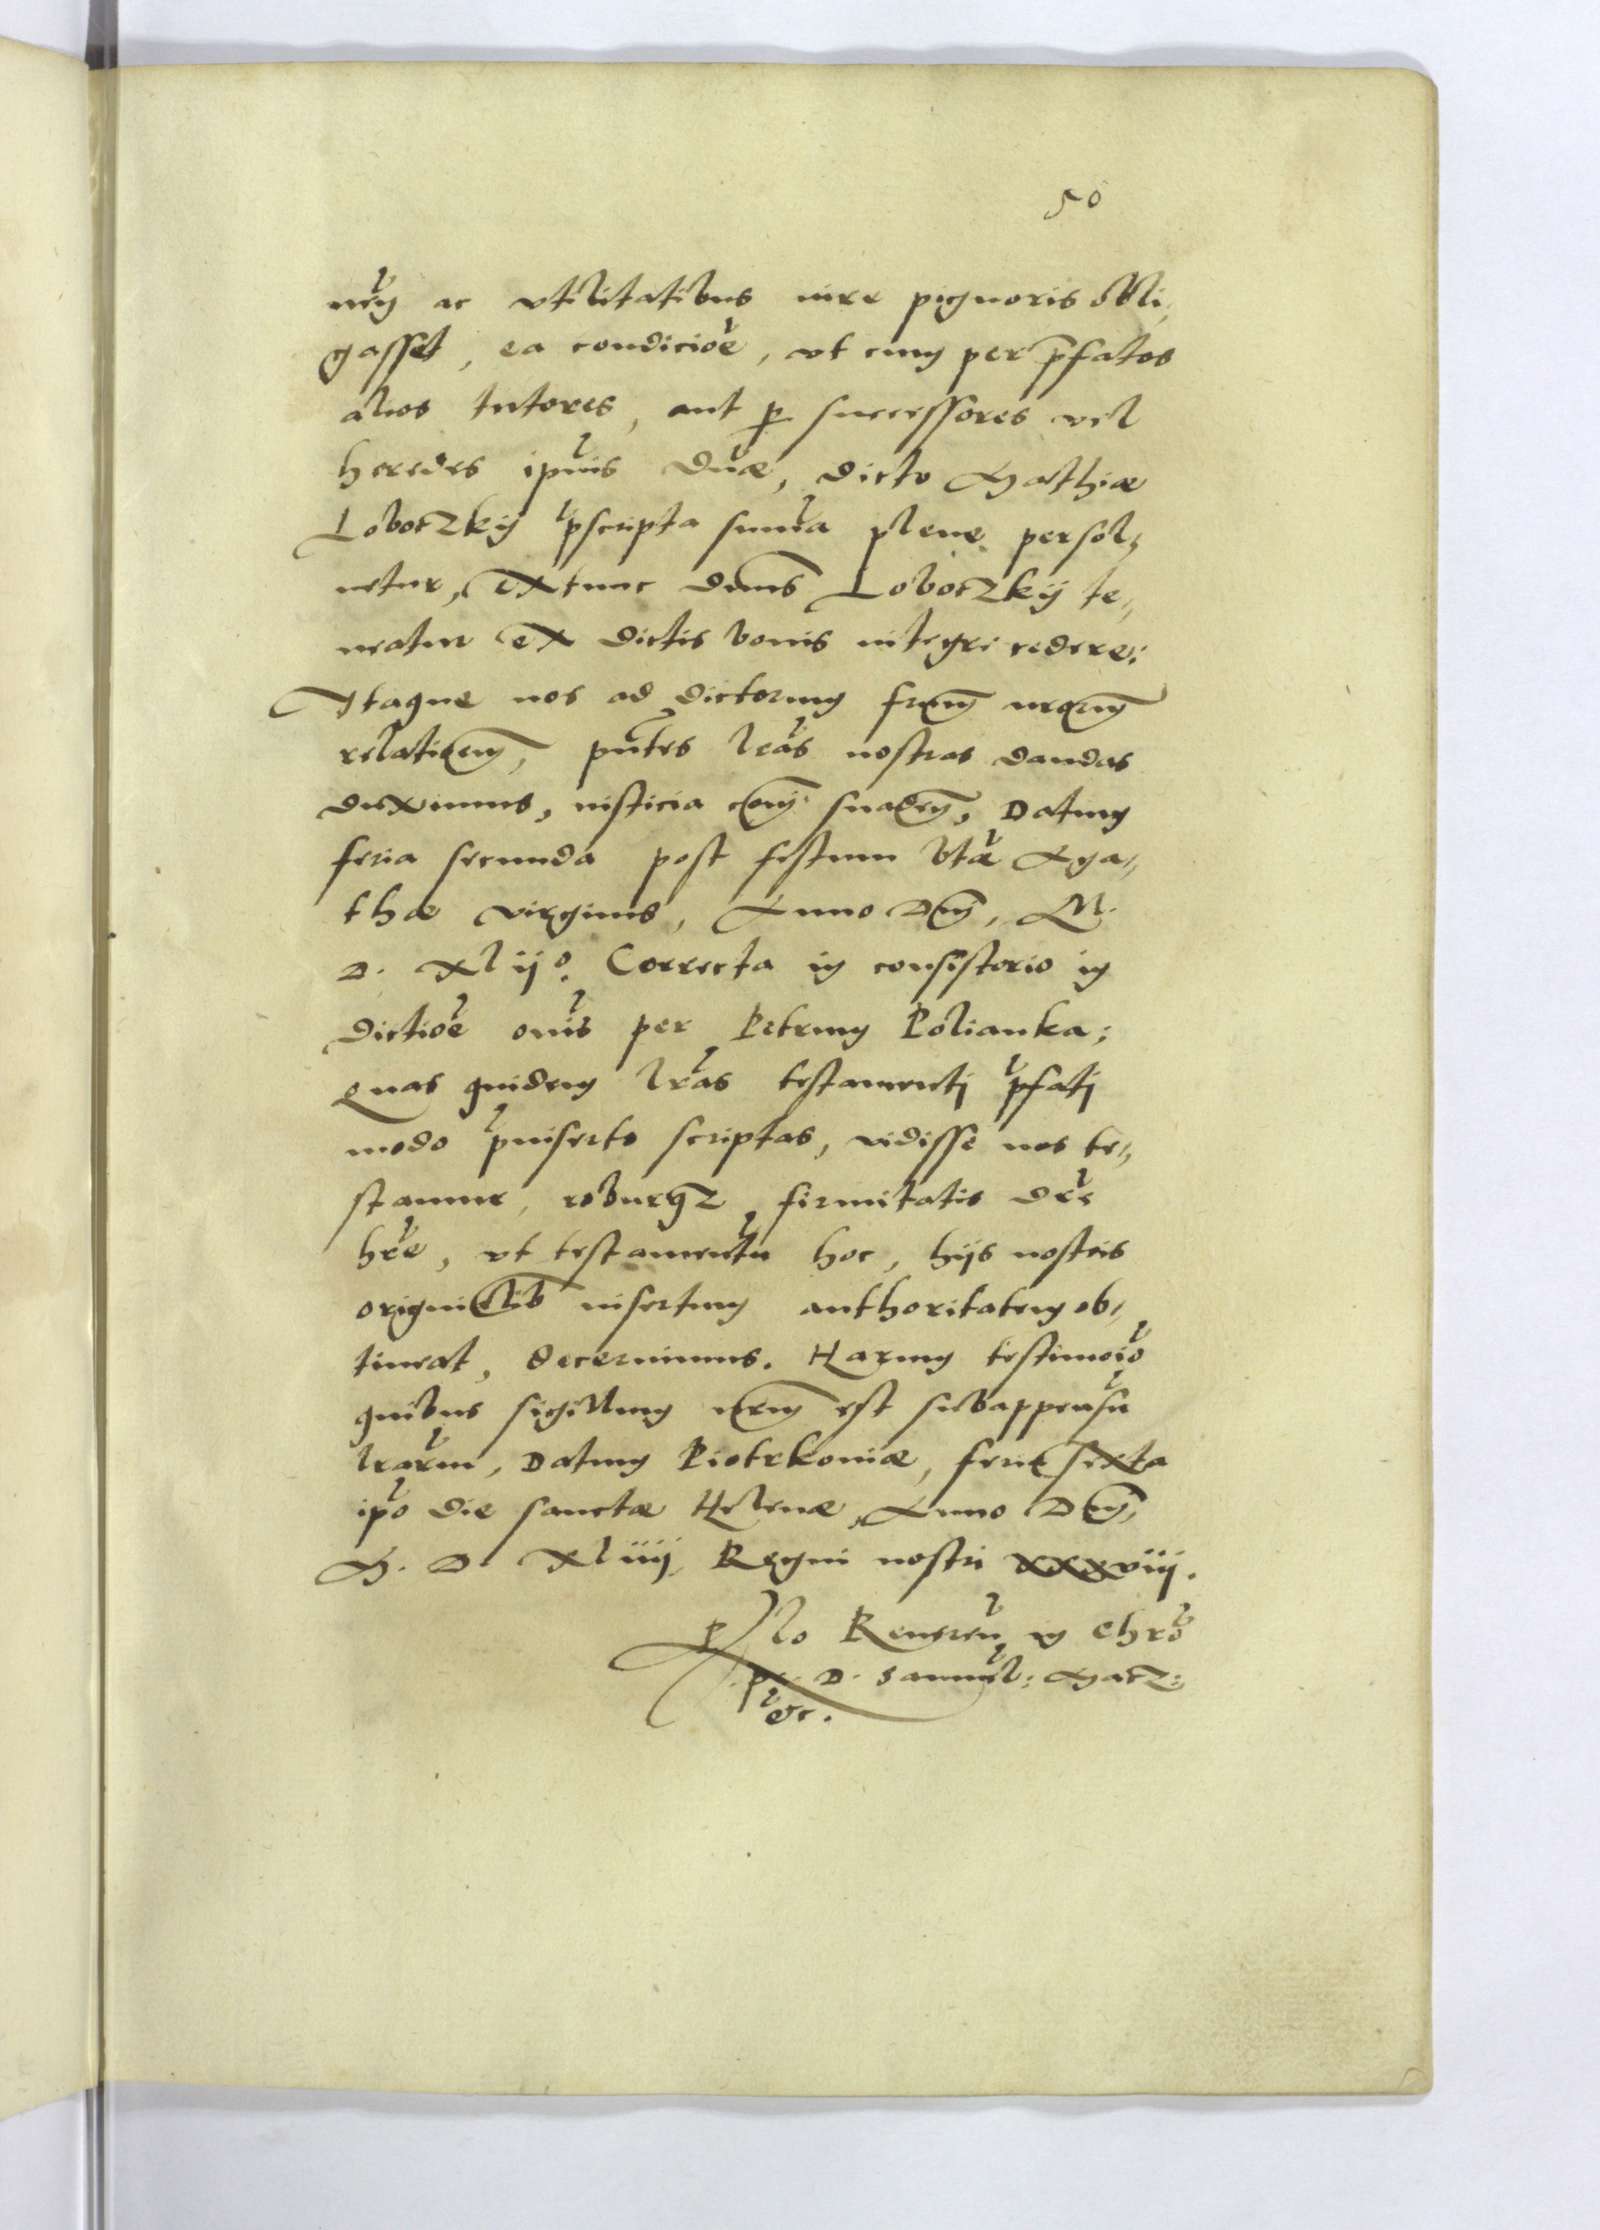 50
ac vtilitatibus iure pignoris obli,
gasset, ea condicioe, vt cum per pfatos
alios tutores, aut p successores vel
heredes ipius Dnae, dicto Mathiae
Loboczkij pscripta suma plene persol,
uetur, Extunc Dnus Loboczkij te,
neatur ex dictis bonis integre cedere:
Itaque nos ad dictorum frum nrorum
relationem, pntes lras nostras dandas
duximus, iusticia coni suadem, Datum
feria secunda post festum btae Aga,
thae virginis, Anno Dni, M.
D. xlij°. Correcta in consistorio in
dictioe onis per Petrum Polianka;
quas quidem lras testamenti pfati
modo pinserto scriptas, vidisse nos te,
stamur, roburqz firmitatis dre
hre, vt testamentu hoc, hijs nostris
originalib insertum authoritatem ob,
tineat, decernimus. Harum testimoio
quibus sigillum nrum est subappensu
lrarum, Datum Piotrkoviae, feria sexta
ipo die sanctae Helenae, Anno Dni,
M. D. xliiij Regni nostri xxxviij.
Rlo Reueren in Chro
p. D. Samuel: Macz:
etc.